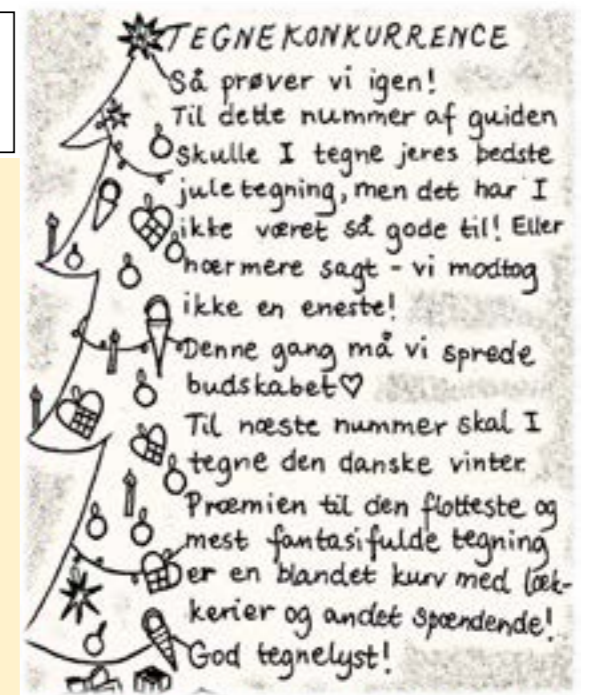 TEGNEKONKURRENCE
Så prøver vi igen!
Til dette nummer af guiden
Skulle I tegne jeres bedste
juletegning, men det har I
ikke været så gode til! Eller
nærmere sagt - vi modtog
ikke en eneste!
Denne gang må vi sprede
budskabet♡
Til næste nummer skal I
tegne den danske vinter.
Præmien til den flotteste og
mest fantasifulde tegning
er en blandet kurv med læk-
kerier og andet spændende!
God tegnelyst!